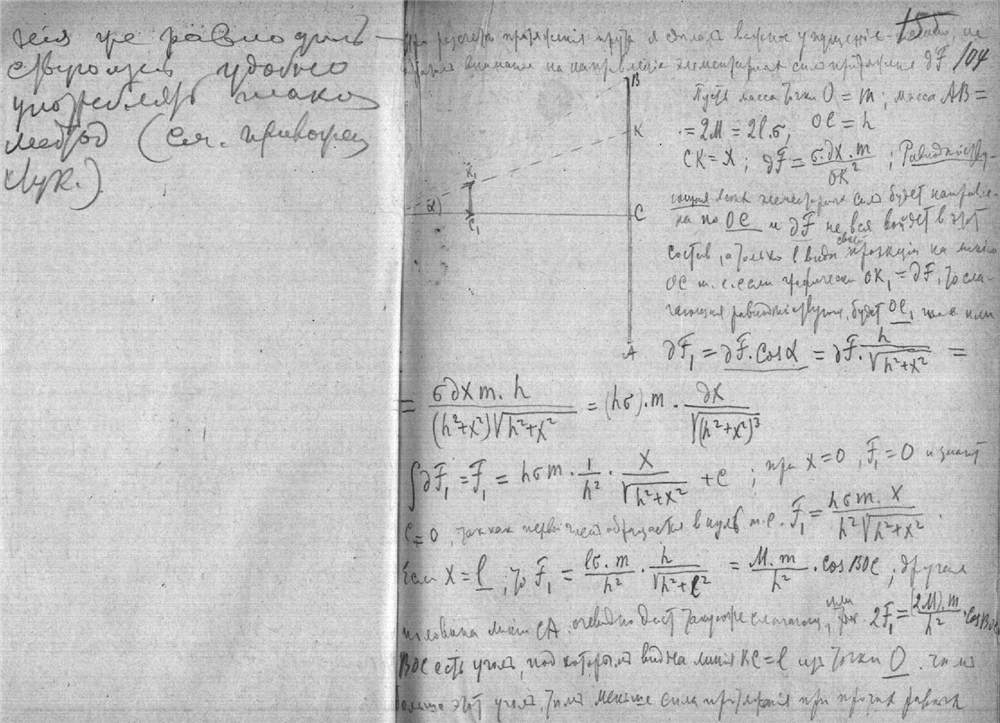 удобно
употреблять
метод (см.
156
104
При расчете притяжения прута я сделал важное упущение
внимания на направление элементарных сил притяжения ∂F
B
Пусть масса точки O = m; масса AB =
= 2M = 2l.σ, OC = h
K
CK = X; ∂F = σ.∂X.m / OK²; Равнодейству-
K₁
ющая всех элементарных сил будет направле-
α
C₁
C
на по OC и ∂F не вся войдет в этот
состав, а только в виде своей проекции на линию
OC т.е. если графически OK₁ = ∂F, то сла-
гающая равнодействующей будет OC₁
A
∂F₁ = ∂F.Cosα = ∂F. h/√(h²+x²) =
= σ∂X m.h / (h²+x²)√(h²+x²) = (hσ).m. ∂X / √(h²+x²)³
∫∂F₁ = F₁ = hσm. 1/h² . X/√(h²+x²) + C; при x=0, F₁=0 и значит
C=0, так как первый член обращается в нуль т.е. F₁ = hσm.X / h²√(h²+x²).
Если X = l, то F₁ = lσ.m/h² . h/√(h²+l²) = M.m/h² . Cos BOC; другая
половина линии CA, очевидно даст такую же слагающую, или 2F₁ = (2M).m/h² . Cos BOC
BOC есть угол, под которым видна линия BC = l из точки O. Чем
больше этот угол, тем меньше сила притяжения при прочих равных